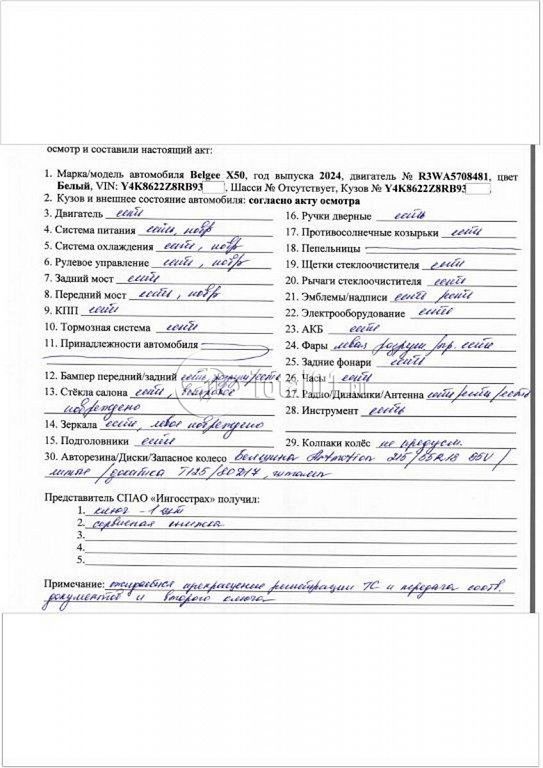 осмотр и составили настоящий акт:
1. Марка/модель автомобиля Belgee X50, год выпуска 2024, двигатель № R3WA5708481, цвет
Белый, VIN: Y4K8622Z8RB93, Шасси № Отсутствует, Кузов № Y4K8622Z8RB93
2. Кузов и внешнее состояние автомобиля: согласно акту осмотра
3. Двигатель есть
4. Система питания есть, повр
5. Система охлаждения есть, повр
6. Рулевое управление есть, повр
7. Задний мост есть
8. Передний мост есть, повр
9. КПП есть
10. Тормозная система есть
11. Принадлежности автомобиля
12. Бампер передний/задний есть, разруш/есть
13. Стёкла салона есть, ветровое
повреждено
14. Зеркала есть, левое повреждено
15. Подголовники есть
16. Ручки дверные есть
17. Противосолнечные козырьки есть
18. Пепельницы
19. Щетки стеклоочистителя есть
20. Рычаги стеклоочистителя есть
21. Эмблемы/надписи есть/есть
22. Электрооборудование есть
23. АКБ есть
24. Фары левая разруш/пр. есть
25. Задние фонари есть
26. Часы есть
27. Радио/Динамики/Антенна есть/есть/есть
28. Инструмент есть
29. Колпаки колёс не предусм.
30. Авторезина/Диски/Запасное колесо Белшина Artmotion 215/55R18 95V/
литые/докатка T125/80R17, штамп
Представитель СПАО «Ингосстрах» получил:
1. ключ - 1 шт
2. сервисная книжка
3.
4.
5.
Примечание: ожидается прекращение регистрации ТС и передача соотв.
документов и второго ключа